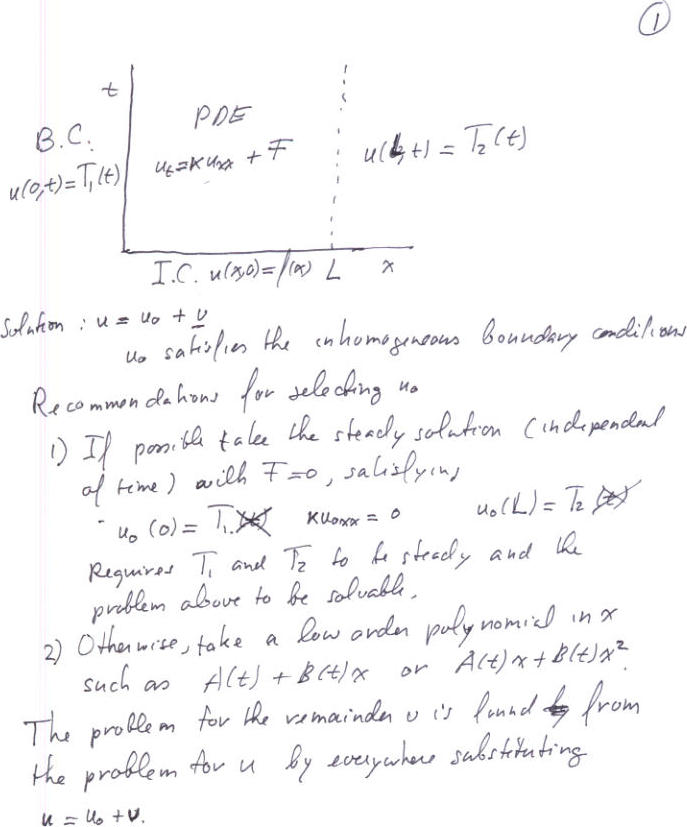 1
t
PDE
B.C.
u_t = κu_xx + F
u(L,t) = T₂(t)
u(0,t) = T₁(t)
I.C. u(x,0) = f(x) L x
Solution : u = u₀ + v
u₀ satisfies the inhomogeneous boundary conditions
Recommendations for selecting u₀
1) If possible take the steady solution (independent
of time) with F=0, satisfying
u₀(0) = T₁ κu₀xx = 0 u₀(L) = T₂
Requires T₁ and T₂ to be steady and the
problem above to be solvable.
2) Otherwise, take a low order polynomial in x
such as A(t) + B(t)x or A(t)x + B(t)x².
The problem for the remainder v is found from
the problem for u by everywhere substituting
u = u₀ + v.